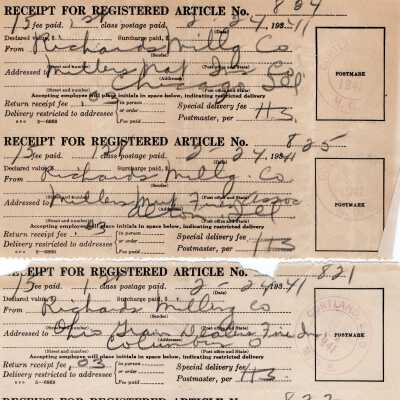 RECEIPT FOR REGISTERED ARTICLE No. 824
15 fee paid, 1 class postage paid, 2-24, 1941
(Date)
Declared value, $ Surcharge paid, $
From Richards Millg. Co
(Sender)
Addressed to Millers Nat Ins Co
(Addressee)
(Street and number) (Post office and State)
Chicago Ill
Accepting employee will place initials in space below, indicating restricted delivery
Return receipt fee .03 In person
or order Special delivery fee
Delivery restricted to addressee Fee paid Postmaster, per HS
5-6863
POSTMARK
RECEIPT FOR REGISTERED ARTICLE No. 825
15 fee paid, 1 class postage paid, 2-24, 1941
(Date)
Declared value, $ Surcharge paid, $
From Richards Millg. Co
(Sender)
Addressed to Millers Mut Fire Assoc
(Addressee)
(Street and number) (Post office and State)
Alton Ill
Accepting employee will place initials in space below, indicating restricted delivery
Return receipt fee .03 In person
or order Special delivery fee
Delivery restricted to addressee Fee paid Postmaster, per HS
5-6863
POSTMARK
RECEIPT FOR REGISTERED ARTICLE No. 821
15 fee paid, 1 class postage paid, 2-24, 1941
(Date)
Declared value, $ Surcharge paid, $
From Richards Milling Co
(Sender)
Addressed to Ohio Grain Dealers Fire Ins
(Addressee)
(Street and number) (Post office and State)
Columbus O
Accepting employee will place initials in space below, indicating restricted delivery
Return receipt fee .03 In person
or order Special delivery fee
Delivery restricted to addressee Fee paid Postmaster, per HS
5-6863
POSTMARK
CORTLAND
1941
RECEIPT FOR REGISTERED ARTICLE No.